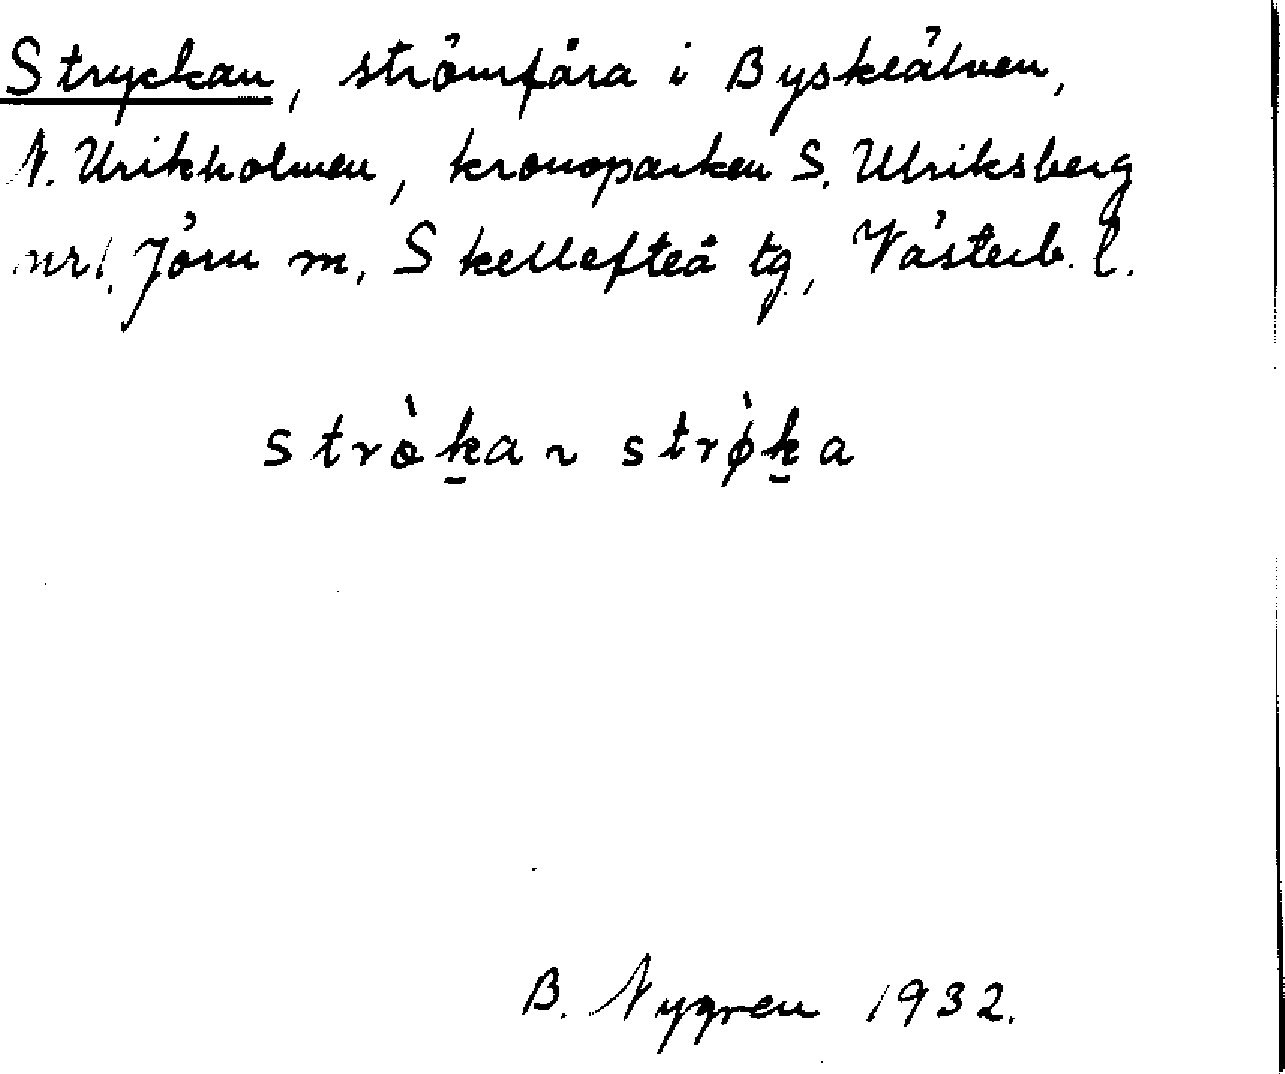 Stryckan, strömfåra i Byskeälven,
N. Urikholmen, kronoparken S. Ulriksberg
nr 1. Jörn m, Skellefteå tg, Västerb. l.
strò̱ka ~ strø̀ḵa
B. Nygren 1932.